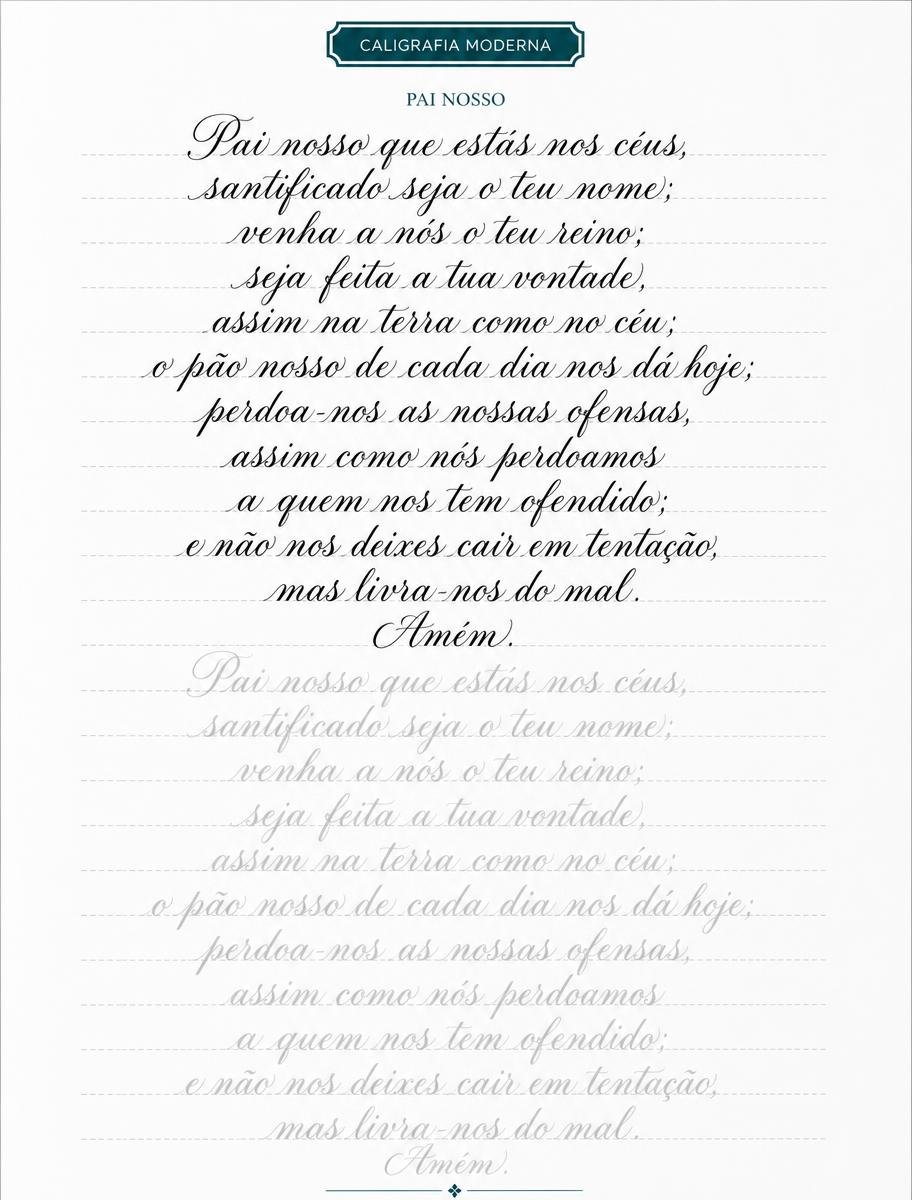 CALIGRAFIA MODERNA
PAI NOSSO
Pai nosso que estás nos céus,
santificado seja o teu nome;
venha a nós o teu reino;
seja feita a tua vontade,
assim na terra como no céu;
o pão nosso de cada dia nos dá hoje;
perdoa-nos as nossas ofensas,
assim como nós perdoamos
a quem nos tem ofendido;
e não nos deixes cair em tentação,
mas livra-nos do mal.
Amém.
Pai nosso que estás nos céus,
santificado seja o teu nome;
venha a nós o teu reino;
seja feita a tua vontade,
assim na terra como no céu;
o pão nosso de cada dia nos dá hoje;
perdoa-nos as nossas ofensas,
assim como nós perdoamos
a quem nos tem ofendido;
e não nos deixes cair em tentação,
mas livra-nos do mal.
Amém.